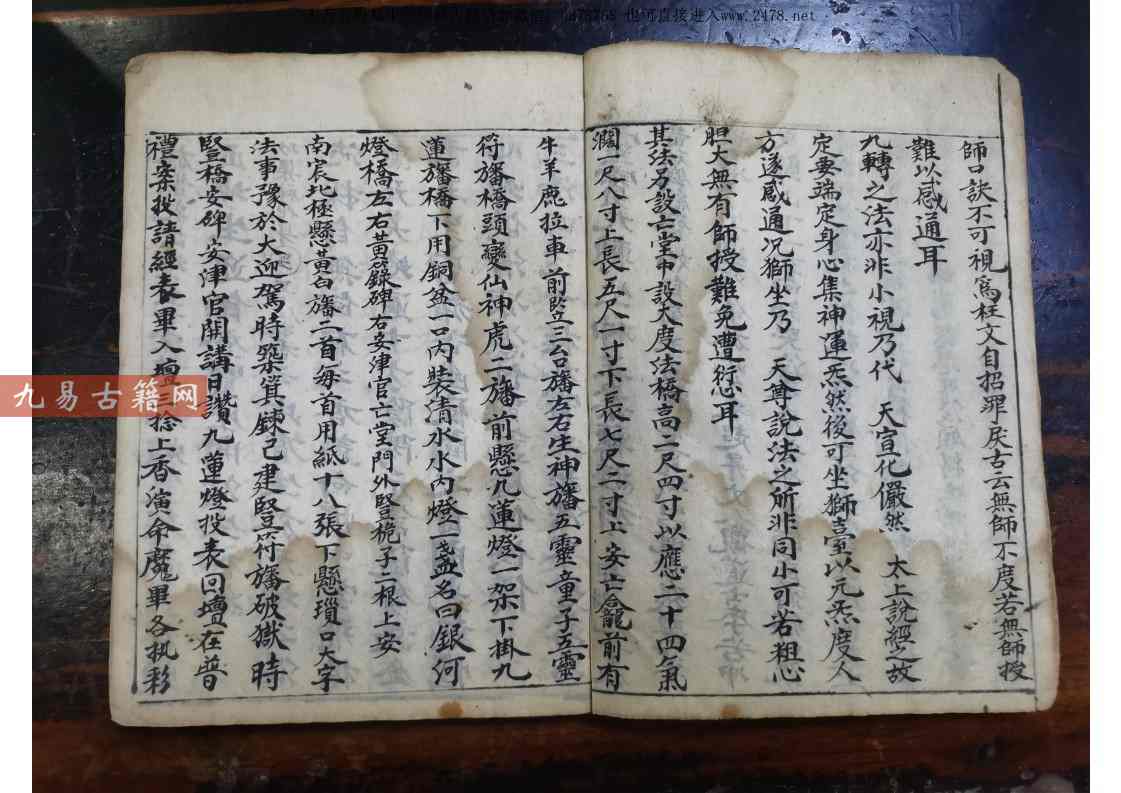 也可直接进入www.2478.net
九易古籍网
師口訣不可視爲枉文自招罪戾古云無師不度若無師授
難以感通耳
九轉之法亦非小視乃代 天宣化儼然 太上說經之故
定要端定身心集神運炁然後可坐獅臺以元炁度人
方遂感通况獅坐乃 天尊說法之所非同小可若粗心
胆大無有師授難免遭衍愆耳
其法另設亡堂中設大度法橋高二尺四寸以應二十四氣
濶一尺八寸上長五尺一寸下長七尺二寸上安亡龕前有
牛羊鹿拉車前竪三台旛左右生神旛五靈童子五靈
符旛橋頭變仙神虎二旛前懸九蓮燈一架下掛九
蓮旛橋下用銅盆一口内裝清水水内燈一盞名曰銀河
燈橋左右黄籙碑右安津官亡堂門外竪桅子二根上安
南宸北極懸黄白旛二首每首用紙十八張下懸瑣口大字
法事豫於大迎駕時築箕鍊己建竪符旛破獄時
竪橋安碑安津官開講日讚九蓮燈投表回壇在普
禮案投請經表畢入壇捻上香演命魔畢各执彩